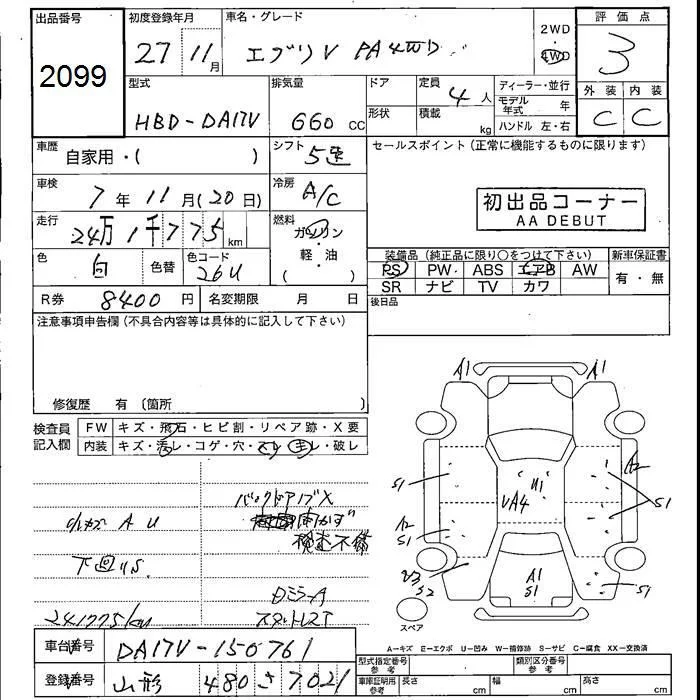 出品番号
2099
初度登録年月
27 11月
車名・グレード
エブリV PA 4WD
2WD
4WD
評価点
3
外装 内装
C C
型式
HBD-DA17V
排気量
660 cc
ドア
形状
定員
4 人
積載
kg
ディーラー・並行
モデル年式 年
ハンドル 左・右
車歴
自家用・( )
シフト
5速
セールスポイント(正常に機能するものに限ります)
初出品コーナー
AA DEBUT
車検
7年11月(20日)
冷房
A/C
走行
24万1千775 km
燃料
ガソリン
軽・油
( )
色
白
色替
色コード
26U
装備品(純正品に限り○をつけて下さい)
PS PW ABS エアB AW
SR ナビ TV カワ
新車保証書
有・無
R券 8400 円
名変期限 月 日
後日品
注意事項申告欄(不具合内容等は具体的に記入して下さい)
修復歴 有 〔箇所 〕
検査員記入欄
FW キズ・飛石・ヒビ割・リペア跡・X要
内装 キズ・汚レ・コゲ・穴・スレ・モレ・破レ
小キズ A U
下回りS
241775km
バックドアノブX
開かず
検査不備
DミラーA
スタットレスT
A1 A1
S1
A2
S1
U1
VA4
A2
S1
V3
S2
A1
S1
S1
スペア
A-キズ E-エクボ U-凹み W-補修跡 S-サビ C-腐食 XX-交換済
車台番号
DA17V-150761
登録番号
山形 480 さ 7021
型式指定番号 参考
類別区分番号 参考
車庫証明用 参考
長さ cm
幅 cm
高さ cm